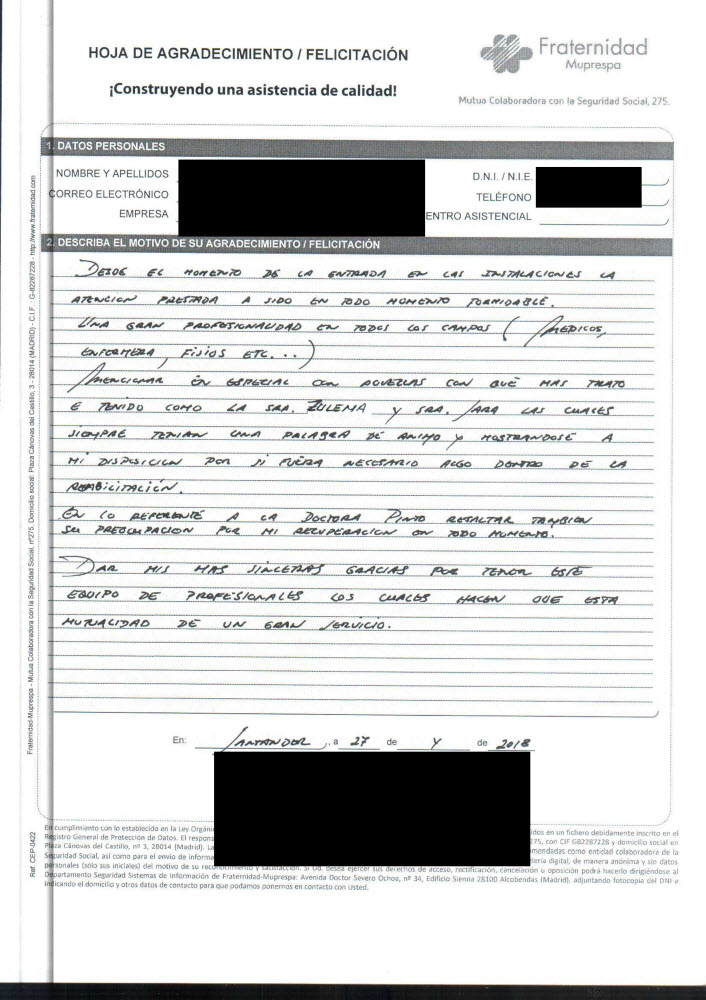 HOJA DE AGRADECIMIENTO / FELICITACIÓN
Fraternidad
Muprespa
¡Construyendo una asistencia de calidad!
Mutua Colaboradora con la Seguridad Social, 275.
1. DATOS PERSONALES
NOMBRE Y APELLIDOS
D.N.I. / N.I.E.
CORREO ELECTRÓNICO
TELÉFONO
EMPRESA
ENTRO ASISTENCIAL
2. DESCRIBA EL MOTIVO DE SU AGRADECIMIENTO / FELICITACIÓN
DESDE EL MOMENTO DE LA ENTRADA EN LAS INSTALACIONES LA
ATENCION PRESTADA A SIDO EN TODO MOMENTO FORMIDABLE.
UNA GRAN PROFESIONALIDAD EN TODOS LOS CAMPOS (MEDICOS,
ENFERMERA, FISIOS ETC...)
MENCIONAR EN ESPECIAL CON AQUELLAS CON QUE MAS TRATO
E TENIDO COMO LA SRA. ZULEMA Y SRA. SARA LAS CUALES
SIEMPRE TENIAN UNA PALABRA DE ANIMO Y MOSTRANDOSE A
MI DISPOSICION POR SI FUERA NECESARIO ALGO DENTRO DE LA
REHABILITACIÓN.
EN LO REFERENTE A LA DOCTORA PINTO RESALTAR TAMBIEN
SU PREOCUPACION POR MI RECUPERACION EN TODO MOMENTO.
DAR MIS MAS SINCERAS GRACIAS POR TENER ESTE
EQUIPO DE PROFESIONALES LOS CUALES HACEN QUE ESTA
MUTUALIDAD DE UN GRAN SERVICIO.
En: SANTANDER, a 27 de Y de 2018
En cumplimiento con lo establecido en la Ley Orgáni dos en un fichero debidamente inscrito en el
Registro General de Protección de Datos. El respons 275, con CIF G82287228 y domicilio social en
Plaza Cánovas del Castillo, nº 3, 28014 (Madrid). La mendadas como entidad colaboradora de la
Seguridad Social, así como para el envío de informa telería digital, de manera anónima y sin datos
personales (sólo sus iniciales) del motivo de su reconocimiento y satisfacción. Si Ud. desea ejercer sus derechos de acceso, rectificación, cancelación u oposición podrá hacerlo dirigiéndose al
Departamento Seguridad Sistemas de Información de Fraternidad-Muprespa: Avenida Doctor Severo Ochoa, nº 34, Edificio Sienna 28100 Alcobendas (Madrid), adjuntando fotocopia del DNI e
indicando el domicilio y otros datos de contacto para que podamos ponernos en contacto con Usted.
Fraternidad-Muprespa - Mutua Colaboradora con la Seguridad Social, nº275. Domicilio social: Plaza Cánovas del Castillo, 3 - 28014 (MADRID) - C.I.F. : G-82287228 - http://www.fraternidad.com
Ref. CEP-0422